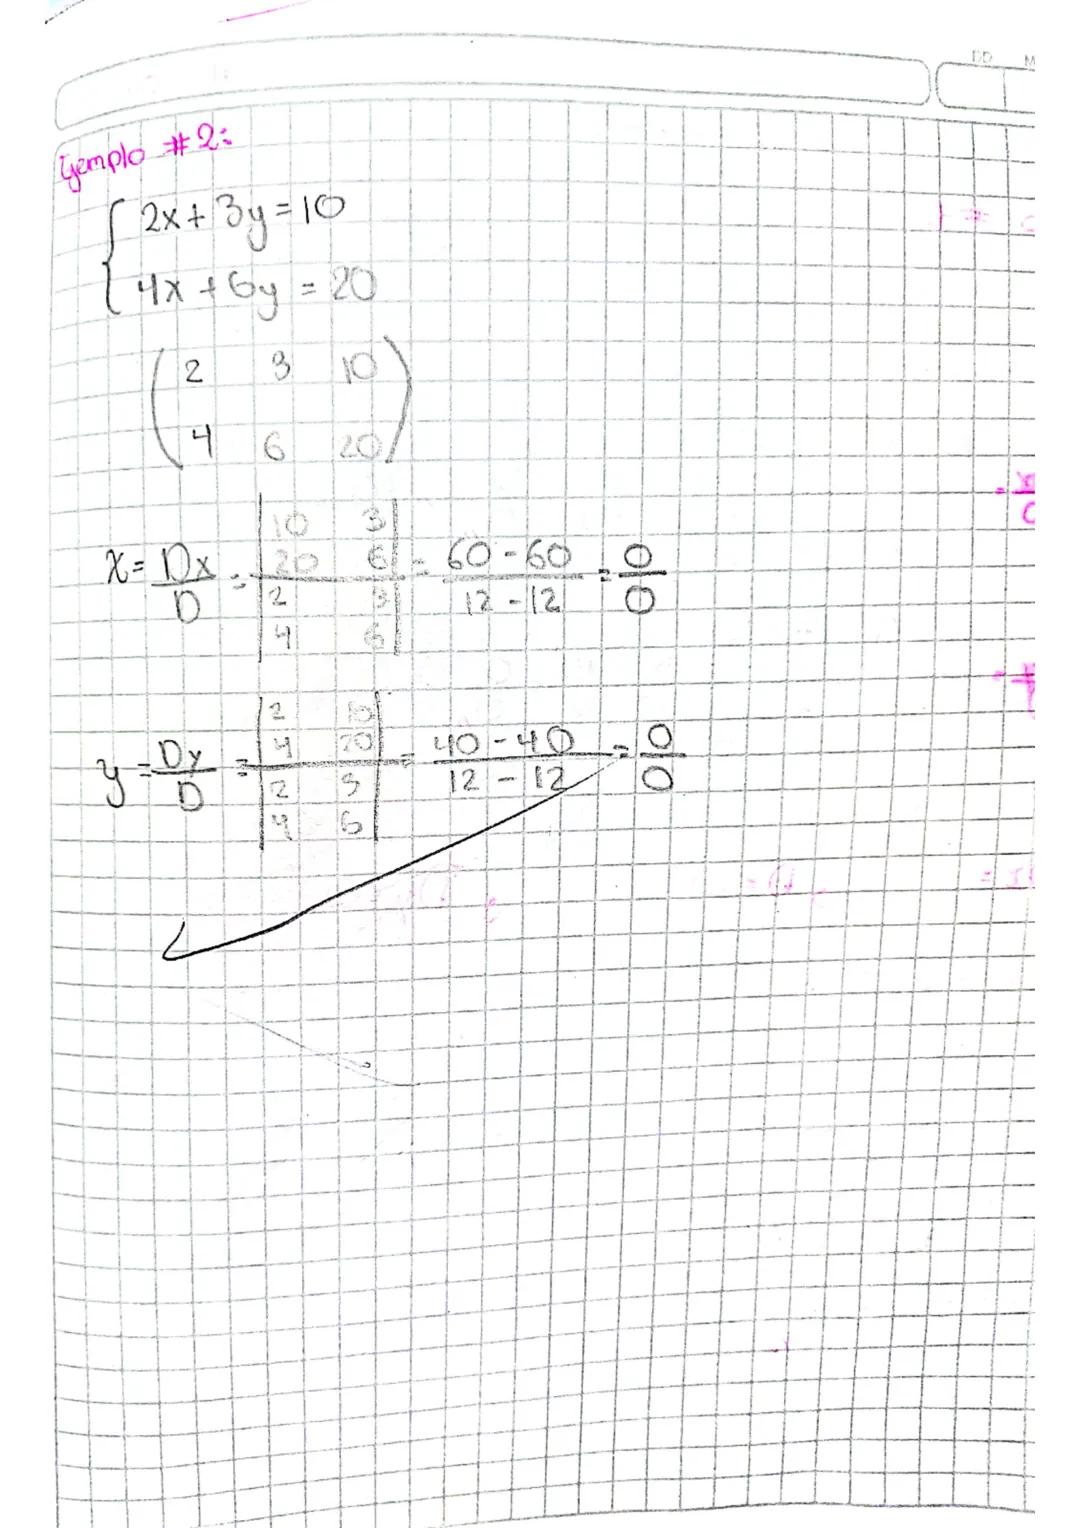 DD M
Ejemplo #2:
2x + 3y = 10
4x + 6y = 20
2 3 10
4 6 20
x = Dx/D = |10 3; 20 6| / |2 3; 4 6| = 60 - 60 / 12 - 12 = 0/0
y = Dy/D = |2 10; 4 20| / |2 3; 4 6| = 40 - 40 / 12 - 12 = 0/0